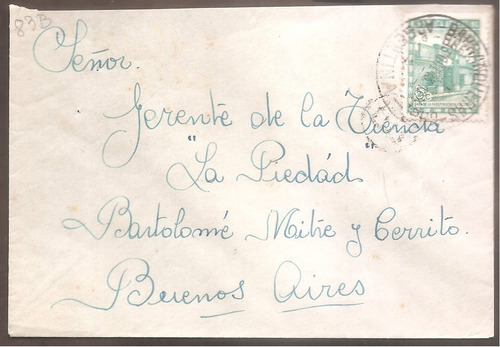 83B
Señor.
Gerente de la Tienda
"La Piedád"
Bartolomé Mitre y Cerrito.
Buenos Aires